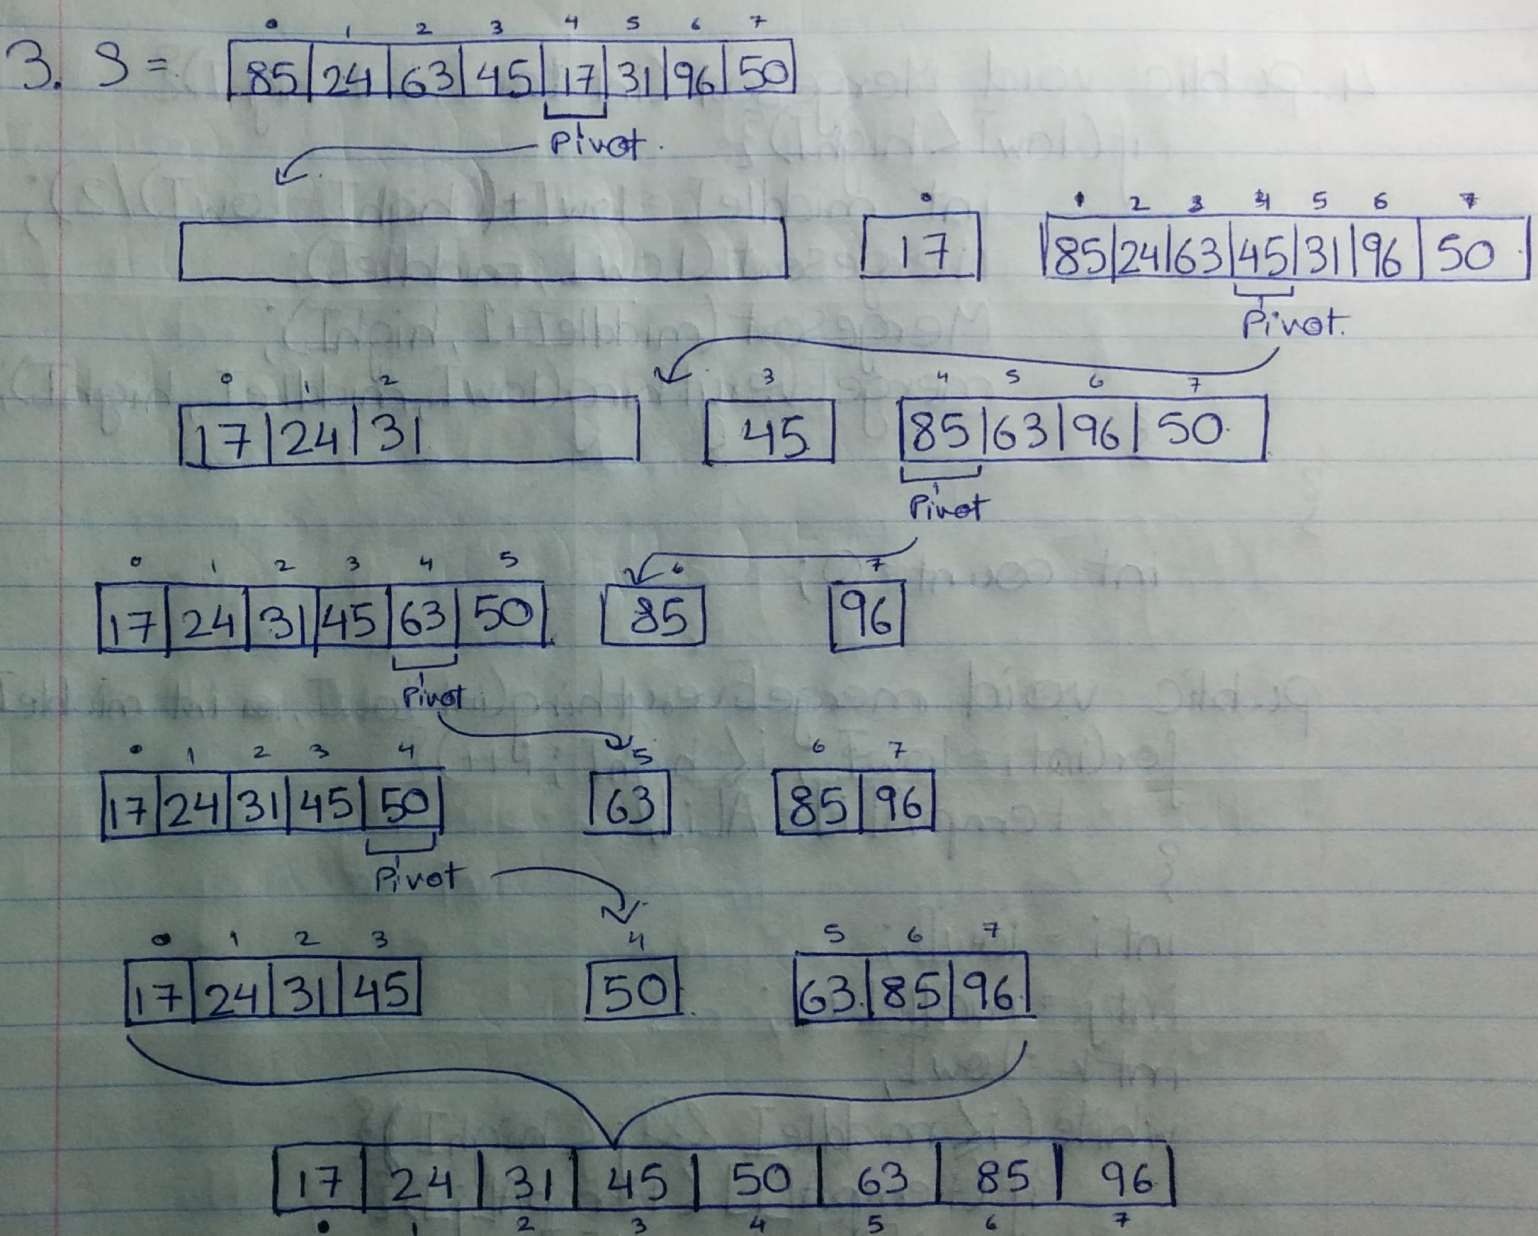 0 1 2 3 4 5 6 7
3. S = 85 24 63 45 17 31 96 50
Pivot.
0 1 2 3 4 5 6 7
17 85 24 63 45 31 96 50
Pivot.
0 1 2 3 4 5 6 7
17 24 31 45 85 63 96 50
Pivot
0 1 2 3 4 5 6 7
17 24 31 45 63 50 85 96
Pivot
0 1 2 3 4 5 6 7
17 24 31 45 50 63 85 96
Pivot
0 1 2 3 4 5 6 7
17 24 31 45 50 63 85 96
17 24 31 45 50 63 85 96
0 1 2 3 4 5 6 7